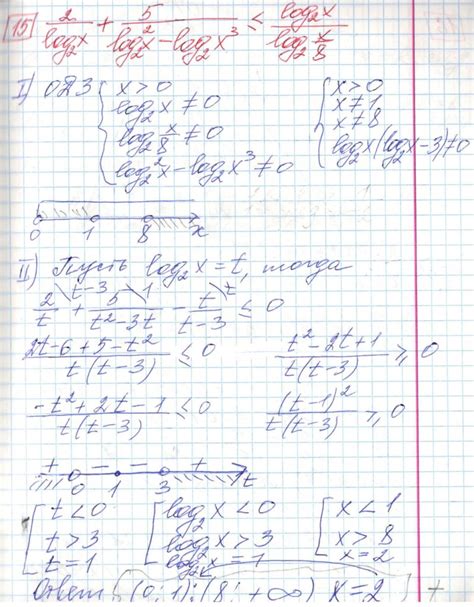 15 2/log₂x + 5/(log₂²x - log₂x³) ≤ log₂x/log₂(x/8)
I) ОДЗ { x > 0 { x > 0
log₂x ≠ 0 x ≠ 1
log₂(x/8) ≠ 0 x ≠ 8
log₂²x - log₂x³ ≠ 0 log₂x(log₂x - 3) ≠ 0
0 1 8 x
II) Пусть log₂x = t, тогда
2/t + 5/(t² - 3t) - t/(t - 3) ≤ 0
(2t - 6 + 5 - t²)/(t(t - 3)) ≤ 0 (t² - 2t + 1)/(t(t - 3)) ≥ 0
(-t² + 2t - 1)/(t(t - 3)) ≤ 0 (t - 1)²/(t(t - 3)) ≥ 0
+ - - +
0 1 3 t
[ t < 0 [ log₂x < 0 [ x < 1
t > 3 log₂x > 3 x > 8
t = 1 log₂x = 1 x = 2
Ответ (0; 1); (8; +∞) x = 2 +